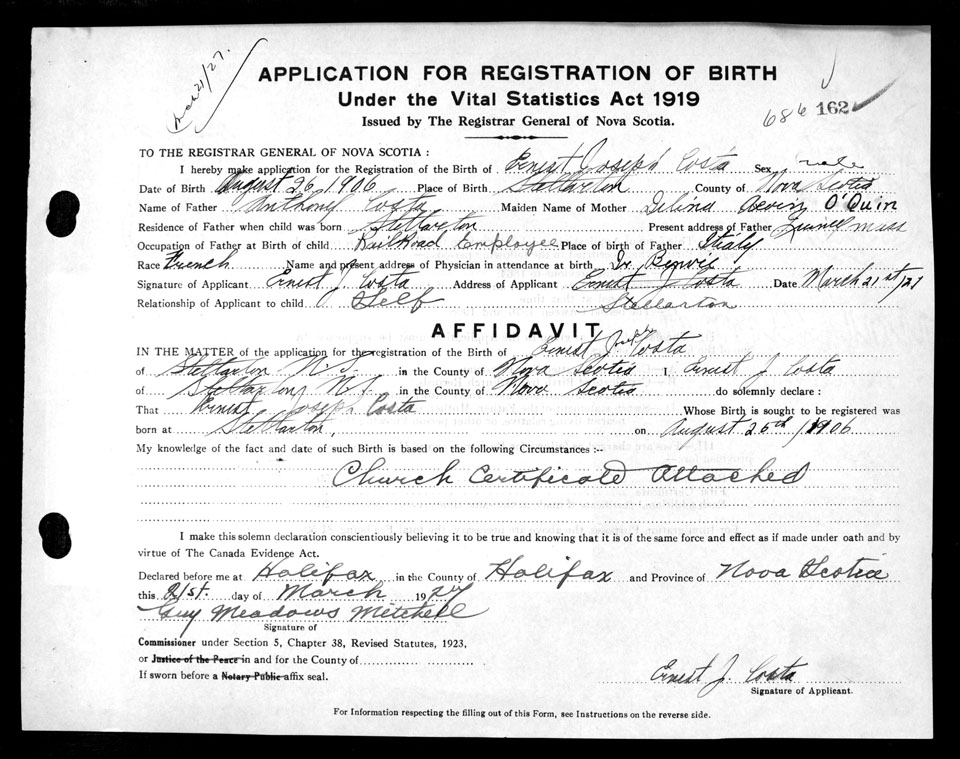 Mar 21/27.
APPLICATION FOR REGISTRATION OF BIRTH
Under the Vital Statistics Act 1919
686 162
Issued by The Registrar General of Nova Scotia.
TO THE REGISTRAR GENERAL OF NOVA SCOTIA :
I hereby make application for the Registration of the Birth of Ernest Joseph Costa Sex male
Date of Birth August 26, 1906 Place of Birth Stellarton County of Nova Scotia
Name of Father Anthony Costa Maiden Name of Mother O'Quin
Residence of Father when child was born Stellarton Present address of Father Mass
Occupation of Father at Birth of child Railroad Employee Place of birth of Father Itialy
Race French Name and present address of Physician in attendance at birth Dr.
Signature of Applicant Ernest J Costa Address of Applicant Ernest J Costa Date March 21st/27
Relationship of Applicant to child Self Stellarton
AFFIDAVIT
IN THE MATTER of the application for the registration of the Birth of Ernest Joseph Costa
of Stellarton N.S. in the County of Nova Scotia I, Ernest J Costa
of Stellarton, N.S. in the County of Nova Scotia do solemnly declare :
That Ernest Joseph Costa Whose Birth is sought to be registered was
born at Stellarton, on August 26th 1906
My knowledge of the fact and date of such Birth is based on the following Circumstances :--
Church Certificate Attached
I make this solemn declaration conscientiously believing it to be true and knowing that it is of the same force and effect as if made under oath and by
virtue of The Canada Evidence Act.
Declared before me at Halifax in the County of Halifax and Province of Nova Scotia
this 21st. day of March 1927
Guy Meadows Mitchell
Signature of
Commissioner under Section 5, Chapter 38, Revised Statutes, 1923,
or Justice of the Peace in and for the County of
If sworn before a Notary Public affix seal.
Ernest J. Costa
Signature of Applicant.
For Information respecting the filling out of this Form, see Instructions on the reverse side.